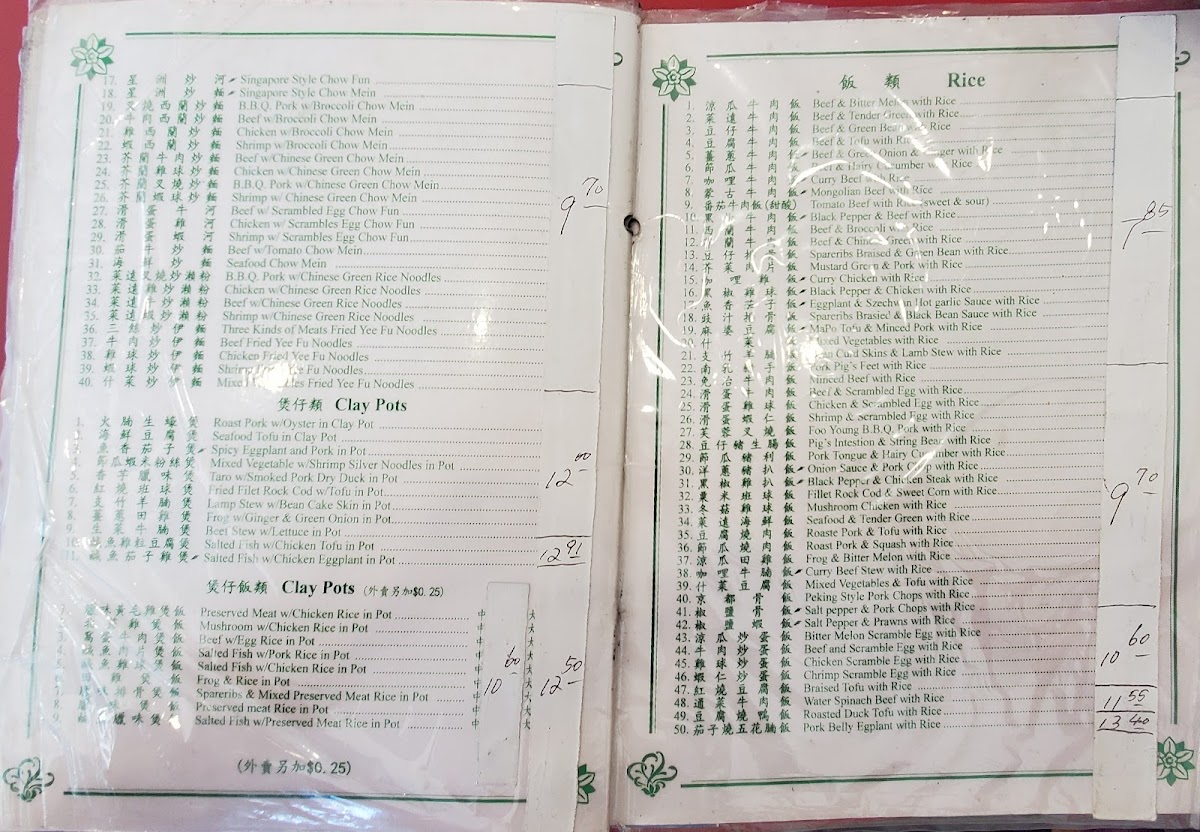 17. 星洲炒河 Singapore Style Chow Fun
18. 星洲炒麵 Singapore Style Chow Mein
19. 叉燒西蘭炒麵 B.B.Q. Pork w/Broccoli Chow Mein
20. 牛肉西蘭炒麵 Beef w/Broccoli Chow Mein
21. 雞西蘭炒麵 Chicken w/Broccoli Chow Mein
22. 蝦西蘭炒麵 Shrimp w/Broccoli Chow Mein
23. 芥蘭牛肉炒麵 Beef w/Chinese Green Chow Mein
24. 芥蘭雞球炒麵 Chicken w/Chinese Green Chow Mein
25. 芥蘭叉燒炒麵 B.B.Q. Pork w/Chinese Green Chow Mein
26. 芥蘭蝦球炒麵 Shrimp w/Chinese Green Chow Mein
27. 滑蛋牛河 Beef w/Scrambled Egg Chow Fun
28. 滑蛋雞河 Chicken w/Scrambles Egg Chow Fun
29. 滑蛋蝦河 Shrimp w/Scrambles Egg Chow Fun
30. 茄牛炒麵 Beef w/Tomato Chow Mein
31. 海鮮炒麵 Seafood Chow Mein
32. 菜遠叉燒炒瀨粉 B.B.Q. Pork w/Chinese Green Rice Noodles
33. 菜遠雞炒瀨粉 Chicken w/Chinese Green Rice Noodles
34. 菜遠牛炒瀨粉 Beef w/Chinese Green Rice Noodles
35. 菜遠蝦炒瀨粉 Shrimp w/Chinese Green Rice Noodles
36. 三絲炒伊麵 Three Kinds of Meats Fried Yee Fu Noodles
37. 牛肉炒伊麵 Beef Fried Yee Fu Noodles
38. 雞球炒伊麵 Chicken Fried Yee Fu Noodles
39. 蝦球炒伊麵 Shrimp Fried Yee Fu Noodles
40. 什菜炒伊麵 Mixed Vegetables Fried Yee Fu Noodles
9 70
煲仔類 Clay Pots
1. 火腩生蠔煲 Roast Pork w/Oyster in Clay Pot
2. 海鮮豆腐煲 Seafood Tofu in Clay Pot
3. 魚香茄子煲 Spicy Eggplant and Pork in Pot
4. 節瓜蝦米粉絲煲 Mixed Vegetable w/Shrimp Silver Noodles in Pot
5. 香芋臘味煲 Taro w/Smoked Pork Dry Duck in Pot
6. 紅燒班球煲 Fried Filet Rock Cod w/Tofu in Pot
7. 支竹羊腩煲 Lamp Stew w/Bean Cake Skin in Pot
8. 薑蔥田雞煲 Frog w/Ginger & Green Onion in Pot
9. 生菜牛腩煲 Beet Stew w/Lettuce in Pot
10. 鹹魚雞粒豆腐煲 Salted Fish w/Chicken Tofu in Pot
11. 鹹魚茄子雞煲 Salted Fish w/Chicken Eggplant in Pot
12 00
12 91
煲仔飯類 Clay Pots (外賣另加$0.25)
臘味黃毛雞煲飯 Preserved Meat w/Chicken Rice in Pot 中 大
雞煲飯 Mushroom w/Chicken Rice in Pot 中 大
3. 窩蛋牛肉煲飯 Beef w/Egg Rice in Pot 中 大
4. 鹹魚肉片煲飯 Salted Fish w/Pork Rice in Pot 中 大
鹹魚雞煲飯 Salted Fish w/Chicken Rice in Pot 中 大
田雞煲飯 Frog & Rice in Pot 中 大
排骨煲飯 Spareribs & Mixed Preserved Meat Rice in Pot 中 大
味煲飯 Preserved meat Rice in Pot 中 大
9. 臘味煲飯 Salted Fish w/Preserved Meat Rice in Pot 中 大
10 60
12 50
(外賣另加$0.25)
飯類 Rice
1. 涼瓜牛肉飯 Beef & Bitter Melon with Rice
2. 菜遠牛肉飯 Beef & Tender Green with Rice
3. 豆仔牛肉飯 Beef & Green Bean with Rice
4. 豆腐牛肉飯 Beef & Tofu with Rice
5. 薑蔥牛肉飯 Beef & Green Onion & Ginger with Rice
6. 節瓜牛肉飯 Beef & Hairy Cucumber with Rice
7. 咖喱牛肉飯 Curry Beef with Rice
8. 蒙古牛肉飯 Mongolian Beef with Rice
9. 番茄牛肉飯(甜酸) Tomato Beef with Rice (sweet & sour)
10. 黑椒牛肉飯 Black Pepper & Beef with Rice
11. 西蘭牛肉飯 Beef & Broccoli with Rice
12. 芥蘭牛肉飯 Beef & Chinese Green with Rice
13. 豆仔排骨飯 Spareribs Braised & Green Bean with Rice
14. 芥菜肉片飯 Mustard Green & Pork with Rice
15. 咖喱雞飯 Curry Chicken with Rice
16. 黑椒雞球飯 Black Pepper & Chicken with Rice
17. 魚香茄子飯 Eggplant & Szechwan Hot garlic Sauce with Rice
18. 豉汁排骨飯 Spareribs Brasied & Black Bean Sauce with Rice
19. 麻婆豆腐飯 MaPo Tofu & Minced Pork with Rice
20. 什菜飯 Mixed Vegetables with Rice
21. 支竹羊腩飯 Bean Curd Skins & Lamb Stew with Rice
22. 南乳豬手飯 Pork Pig's Feet with Rice
23. 免治牛肉飯 Minced Beef with Rice
24. 滑蛋牛肉飯 Beef & Scrambled Egg with Rice
25. 滑蛋雞球飯 Chicken & Scrambled Egg with Rice
26. 滑蛋蝦仁飯 Shrimp & Scrambled Egg with Rice
27. 芙蓉叉燒飯 Foo Young B.B.Q. Pork with Rice
28. 豆仔豬生腸飯 Pig's Intestion & String Bean with Rice
29. 節瓜豬利飯 Pork Tongue & Hairy Cucumber with Rice
30. 洋蔥豬扒飯 Onion Sauce & Pork Chop with Rice
31. 黑椒雞扒飯 Black Pepper & Chicken Steak with Rice
32. 粟米班球飯 Fillet Rock Cod & Sweet Corn with Rice
33. 冬菇雞球飯 Mushroom Chicken with Rice
34. 菜遠海鮮飯 Seafood & Tender Green with Rice
35. 豆腐燒肉飯 Roaste Pork & Tofu with Rice
36. 節瓜燒肉飯 Roast Pork & Squash with Rice
37. 涼瓜田雞飯 Frog & Bitter Melon with Rice
38. 咖喱牛腩飯 Curry Beef Stew with Rice
39. 什菜豆腐飯 Mixed Vegetables & Tofu with Rice
40. 京都骨飯 Peking Style Pork Chops with Rice
41. 椒鹽骨飯 Salt pepper & Pork Chops with Rice
42. 椒鹽蝦飯 Salt Pepper & Prawns with Rice
43. 涼瓜炒蛋飯 Bitter Melon Scramble Egg with Rice
44. 牛肉炒蛋飯 Beef and Scramble Egg with Rice
45. 雞球炒蛋飯 Chicken Scramble Egg with Rice
46. 蝦仁炒蛋飯 Chrimp Scramble Egg with Rice
47. 紅燒豆腐飯 Braised Tofu with Rice
48. 通菜牛肉飯 Water Spinach Beef with Rice
49. 豆腐燒鴨飯 Roasted Duck Tofu with Rice
50. 茄子燒五花腩飯 Pork Belly Egplant with Rice
85
9 70
10 60
11 55
13 40